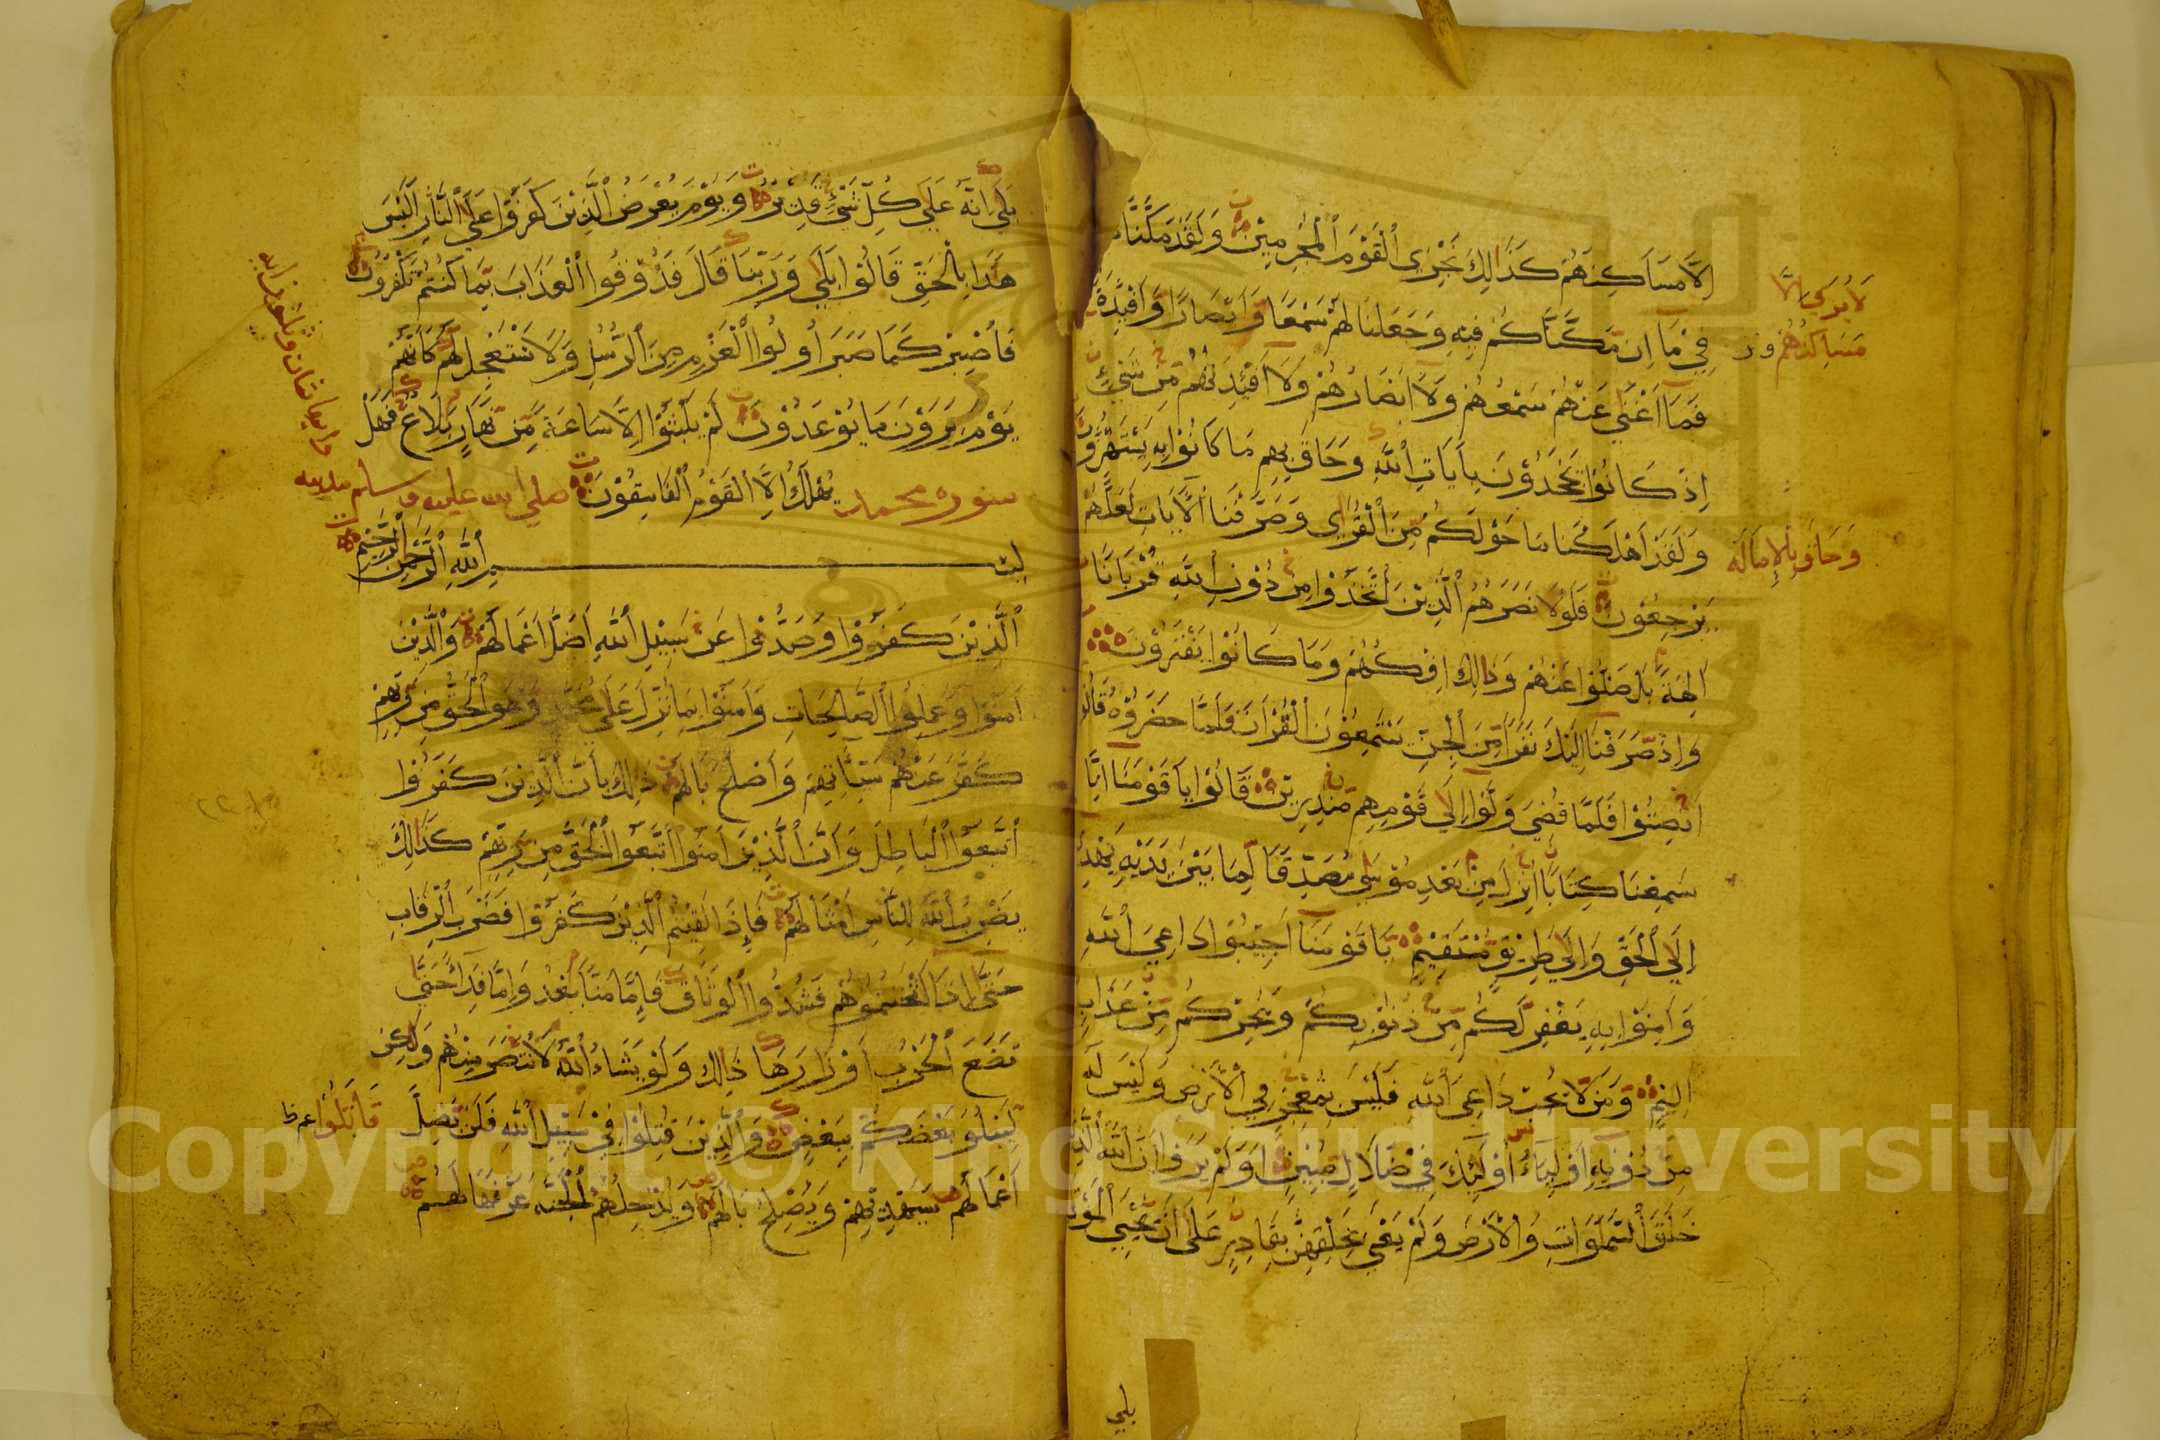 إلا مساكنهم كذلك نجزي القوم المجرمين ولقد مكناهم
في ما إن مكناكم فيه وجعلنا لهم سمعا وأبصارا وأفئدة
فما أغنى عنهم سمعهم ولا أبصارهم ولا أفئدتهم من شيء
إذ كانوا يجحدون بآيات الله وحاق بهم ما كانوا به يستهزؤن
ولقد أهلكنا ما حولكم من القرى وصرفنا الآيات لعلهم
يرجعون فلولا نصرهم الذين اتخذوا من دون الله قربانا
آلهة بل ضلوا عنهم وذلك إفكهم وما كانوا يفترون
وإذ صرفنا إليك نفرا من الجن يستمعون القرآن فلما حضروه قالوا
أنصتوا فلما قضي ولوا إلى قومهم منذرين قالوا يا قومنا إنا
سمعنا كتابا أنزل من بعد موسى مصدقا لما بين يديه يهدي
إلى الحق وإلى طريق مستقيم يا قومنا أجيبوا داعي الله
وآمنوا به يغفر لكم من ذنوبكم ويجركم من عذاب
أليم ومن لا يجب داعي الله فليس بمعجز في الأرض وليس له
من دونه أولياء أولئك في ضلال مبين أولم يروا أن الله الذي
خلق السموات والأرض ولم يعي بخلقهن بقادر على أن يحيي الموتى
بلى
لا يرى إلا
مساكنهم
وحاق بالإمالة
بلى إنه على كل شيء قدير ويوم يعرض الذين كفروا على النار أليس
هذا بالحق قالوا بلى وربنا قال فذوقوا العذاب بما كنتم تكفرون
فاصبر كما صبر أولوا العزم من الرسل ولا تستعجل لهم كأنهم
يوم يرون ما يوعدون لم يلبثوا إلا ساعة من نهار بلاغ فهل
يهلك إلا القوم الفاسقون
سورة محمد صلى الله عليه وسلم مدنية
وآيها ثمان وثلثون آية
بسم الله الرحمن الرحيم
الذين كفروا وصدوا عن سبيل الله أضل أعمالهم والذين
آمنوا وعملوا الصالحات وآمنوا بما نزل على محمد وهو الحق من ربهم
كفر عنهم سيئاتهم وأصلح بالهم ذلك بأن الذين كفروا
اتبعوا الباطل وأن الذين آمنوا اتبعوا الحق من ربهم كذلك
يضرب الله للناس أمثالهم فإذا لقيتم الذين كفروا فضرب الرقاب
حتى إذا أثخنتموهم فشدوا الوثاق فإما منا بعد وإما فداء حتى
تضع الحرب أوزارها ذلك ولو يشاء الله لانتصر منهم ولكن
ليبلو بعضكم ببعض والذين قتلوا في سبيل الله فلن يضل
أعمالهم سيهديهم ويصلح بالهم ويدخلهم الجنة عرفها لهم
قاتلوا
Copyright © King Saud University